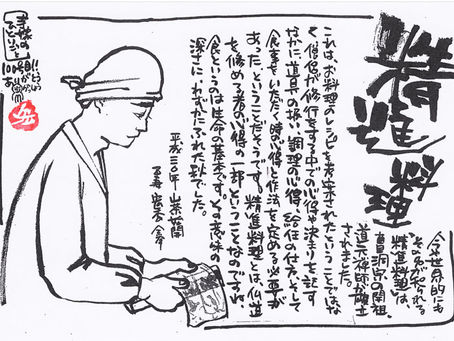 精進料理
今や世界的にも
その名が知られる
"精進料理"は、
曹洞宗の開祖、
道元禅師が確立
されました。
これは、お料理のレシピを考案されたということではな
く、僧侶が修行をする中での心得や決まりを記す
なかに、道具の扱い、調理の心得、給仕の仕方、そして
食事をいただく時の心得と作法を定める必要が
あった、ということだそうです。精進料理とは、仏道
を修める者の心得の一部ということなのですね。
食というのは生命の基本です。その意味の
深さに、わずかにふれた秋でした。
平成三〇年
寺嫁の
ひとりごと
100号!!